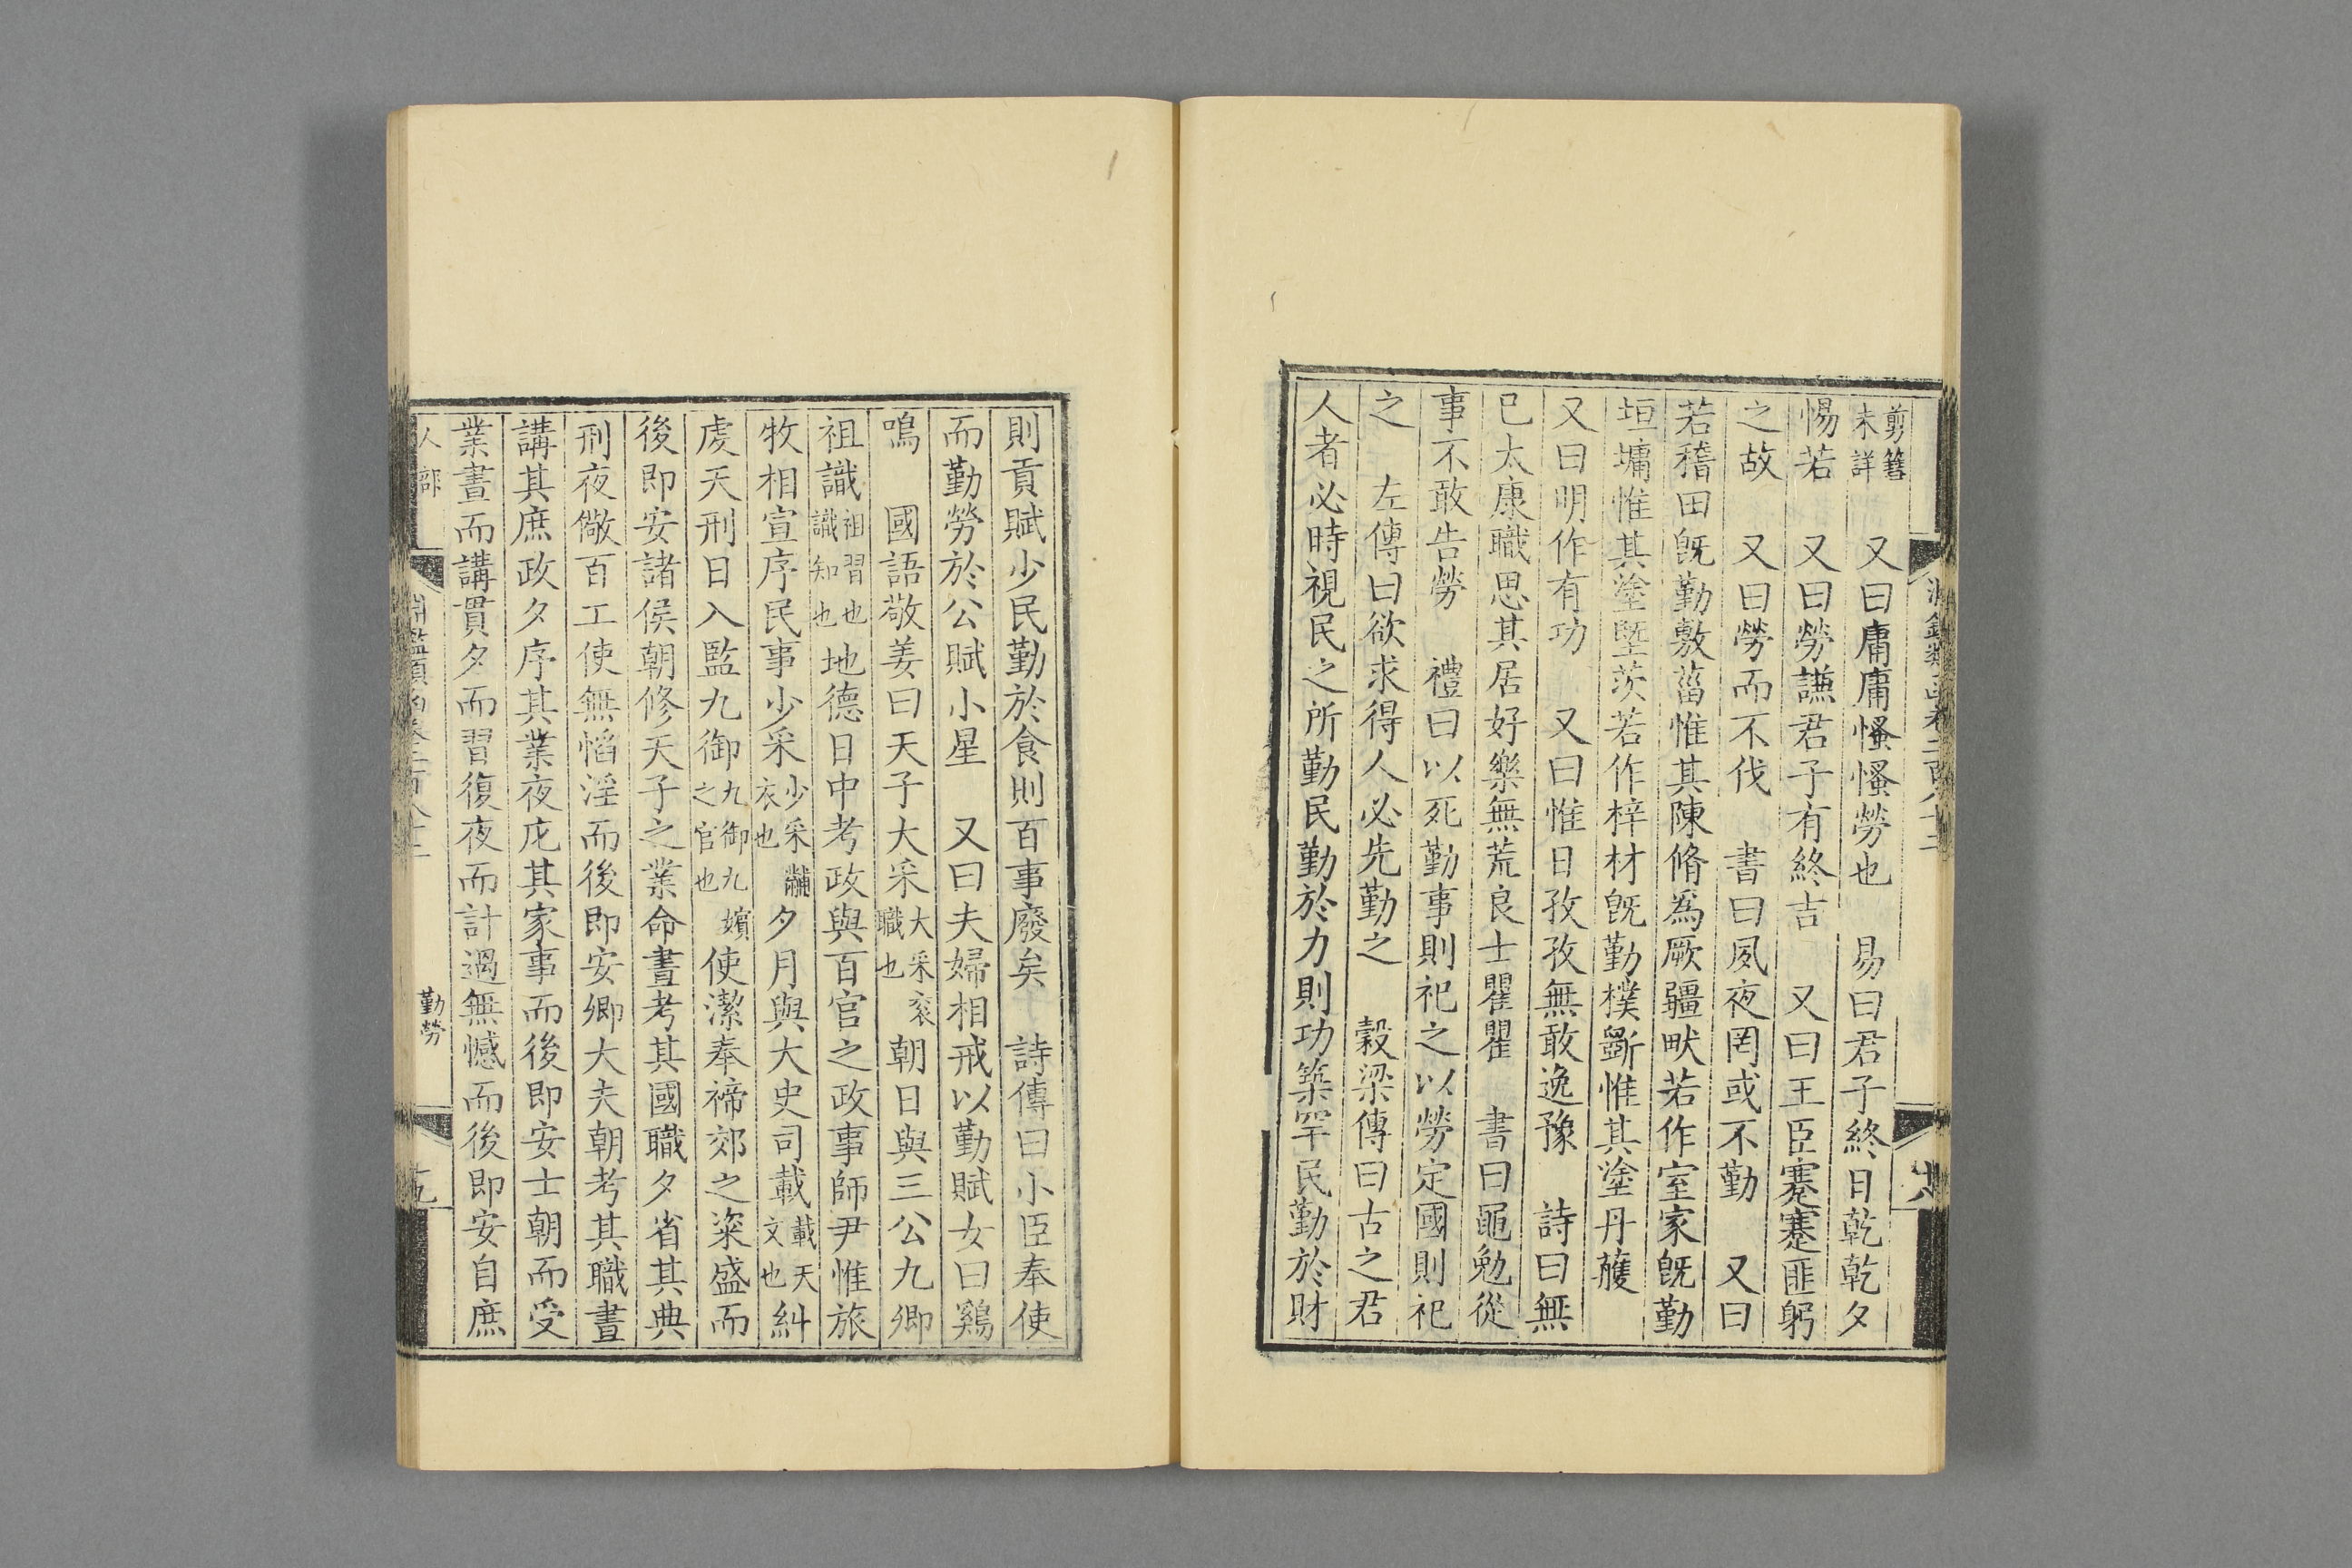 剪簪未詳 又曰庸庸慅慅勞也 易曰君子終日乾乾夕
惕若 又曰勞謙君子有終吉 又曰王臣蹇蹇匪躬
之故 又曰勞而不伐 書曰夙夜罔或不勤 又曰
若稽田旣勤敷菑惟其陳脩為厥疆畎若作室家旣勤
垣墉惟其塗塈茨若作梓材旣勤樸斲惟其塗丹雘
又曰明作有功 又曰惟日孜孜無敢逸豫 詩曰無
已太康職思其居好樂無荒良士瞿瞿 書曰黽勉從
事不敢告勞 禮曰以死勤事則祀之以勞定國則祀
之 左傳曰欲求得人必先勤之 穀梁傳曰古之君
人者必時視民之所勤民勤於力則功築罕民勤於財
則貢賦少民勤於食則百事廢矣 詩傳曰小臣奉使
而勤勞於公賦小星 又曰夫婦相戒以勤賦女曰鷄
鳴 國語敬姜曰天子大采大采袞職也朝日與三公九卿
祖識祖習也識知也地德日中考政與百官之政事師尹惟旅
牧相宣序民事少采少采黼衣也夕月與大史司載載天文也糾
虔天刑日入監九御九御九嬪之官也使潔奉禘郊之粢盛而
後即安諸侯朝修天子之業命晝考其國職夕省其典
刑夜儆百工使無慆淫而後即安卿大夫朝考其職晝
講其庶政夕序其業夜庀其家事而後即安士朝而受
業晝而講貫夕而習復夜而計過無憾而後即安自庶
人部
淵鑑類函卷二百八十二
勤勞
十九